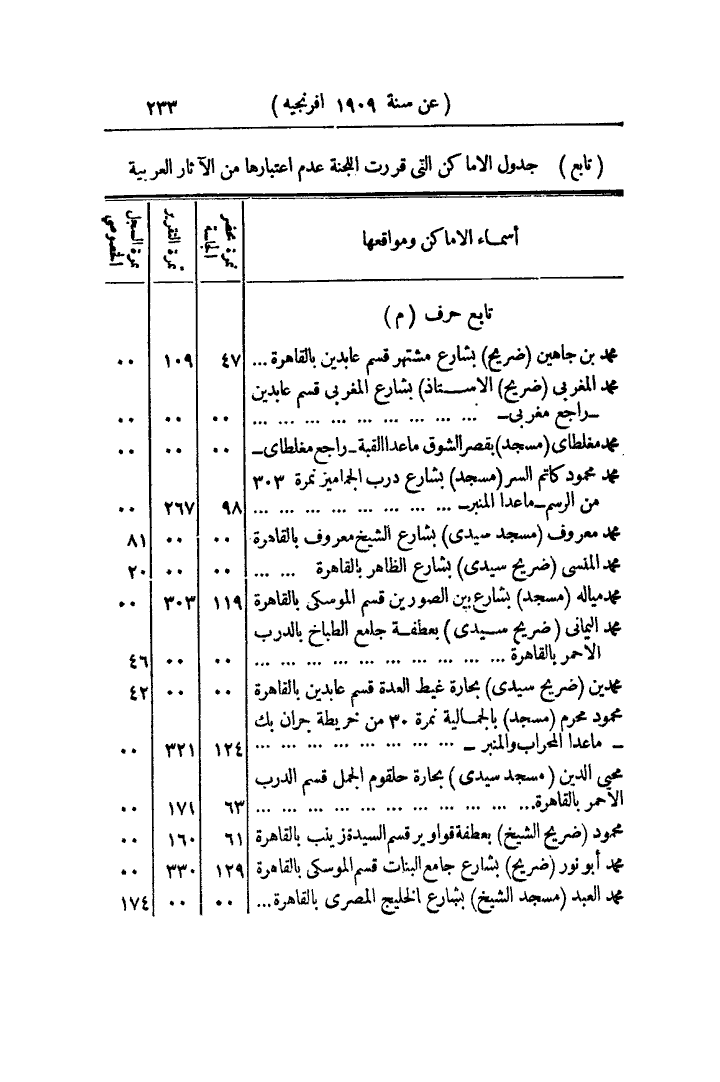 (عن سنة ١٩٠٩ افرنجيه) ٢٣٣
(تابع) جدول الاماكن التى قررت اللجنة عدم اعتبارها من الآثار العربية
أسماء الاماكن ومواقعها | نمرة محضر الجلسة | نمرة التقرير | نمرة السجل الخصوصي
تابع حرف (م)
محمد بن جاهين (ضريح) بشارع مشتهر قسم عابدين بالقاهرة ... ٤٧ ١٠٩ ٠٠
محمد المغربى (ضريح) الاستاذ) بشارع المغربى قسم عابدين
ـ راجع مغربى ـ ... ... ... ... ... ... ... ... ٠٠ ٠٠ ٠٠
محمد مغلطاى (مسجد) بقصر الشوق ماعدا القبة ـ راجع مغلطاى ـ ٠٠ ٠٠ ٠٠
محمد محمود كاتم السر (مسجد) بشارع درب الجماميز نمرة ٣٠٣
من الرسم ـ ماعدا المنبر ـ ... ... ... ... ... ... ... ... ٩٨ ٢٦٧ ٠٠
محمد معروف (مسجد سيدى) بشارع الشيخ معروف بالقاهرة ٠٠ ٠٠ ٨١
محمد المنسى (ضريح سيدى) بشارع الظاهر بالقاهرة ... ... ٠٠ ٠٠ ٢٠
محمد مياله (مسجد) بشارع بين الصورين قسم الموسكى بالقاهرة ١١٩ ٣٠٣ ٠٠
محمد اليمانى (ضريح سيدى) بعطفة جامع الطباخ بالدرب
الاحمر بالقاهرة ... ... ... ... ... ... ... ... ... ٠٠ ٠٠ ٤٦
محمدين (ضريح سيدى) بحارة غيط العدة قسم عابدين بالقاهرة ٠٠ ٠٠ ٤٢
محمود محرم (مسجد) بالجمالية نمرة ٣٠ من خريطة جران بك
ـ ماعدا المحراب والمنبر ـ ... ... ... ... ... ... ... ... ١٢٤ ٣٢١ ٠٠
محيى الدين (مسجد سيدى) بحارة حلقوم الجمل قسم الدرب
الاحمر بالقاهرة... ... ... ... ... ... ... ... ... ... ٦٣ ١٧١ ٠٠
محمود (ضريح الشيخ) بعطفة قواوير قسم السيدة زينب بالقاهرة ٦١ ١٦٠ ٠٠
محمد أبو نور (ضريح) بشارع جامع البنات قسم الموسكى بالقاهرة ١٢٩ ٣٣٠ ٠٠
محمد العبد (مسجد الشيخ) بشارع الخليج المصرى بالقاهرة ... ٠٠ ٠٠ ١٧٤